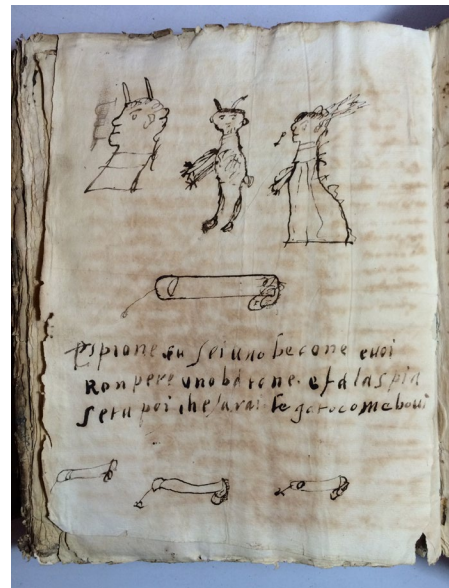 espione tu sei uno becone e voi
Ronpere uno barone e fa la spia
sera poi che sarai legato come boui